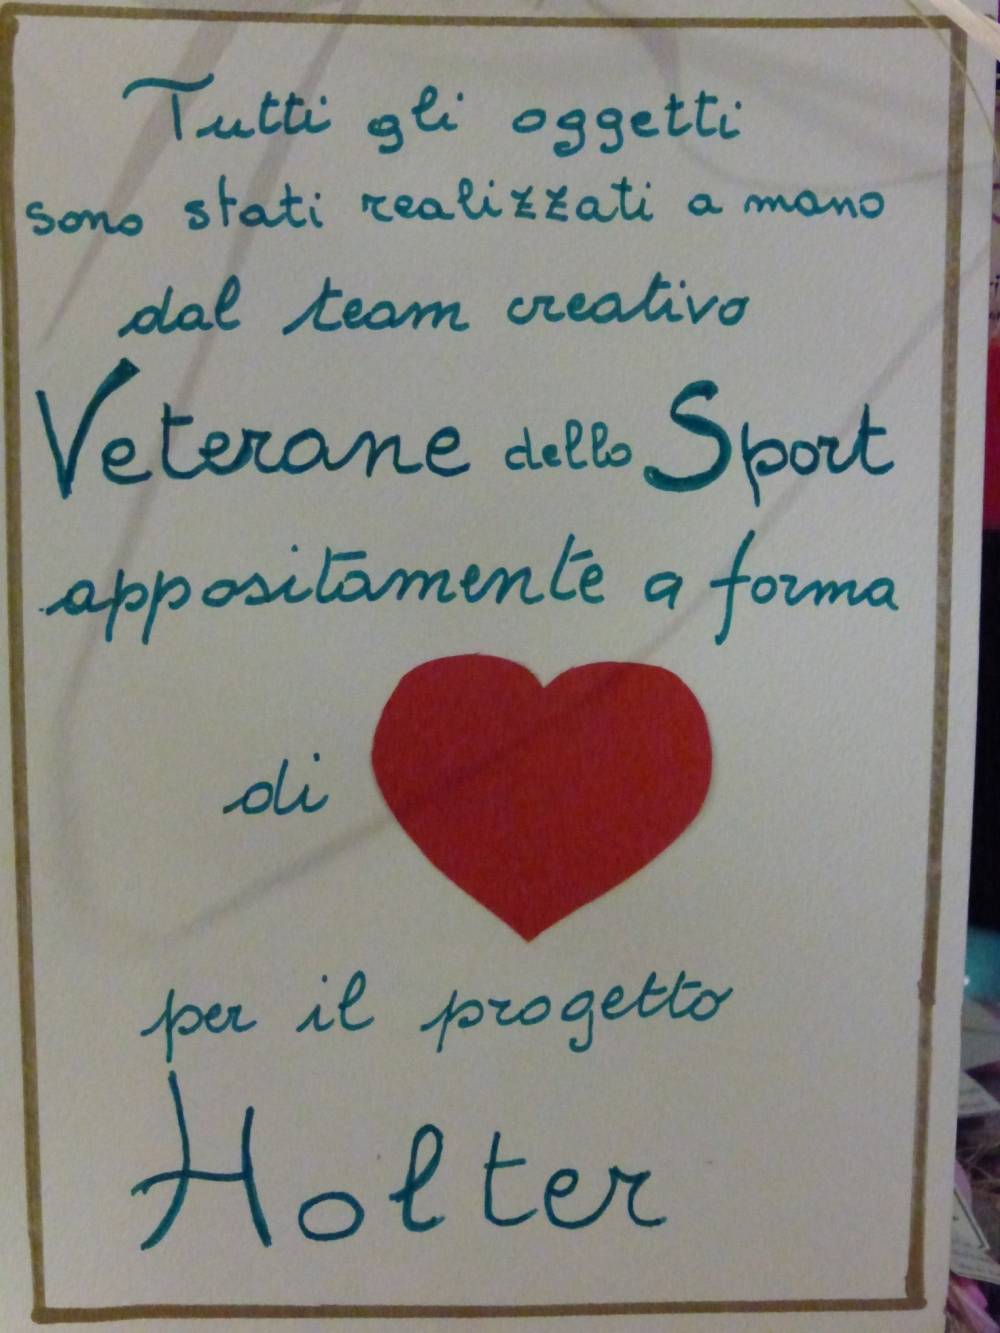 Tutti gli oggetti
sono stati realizzati a mano
dal team creativo
Veterane dello Sport
appositamente a forma
di
per il progetto
Holter